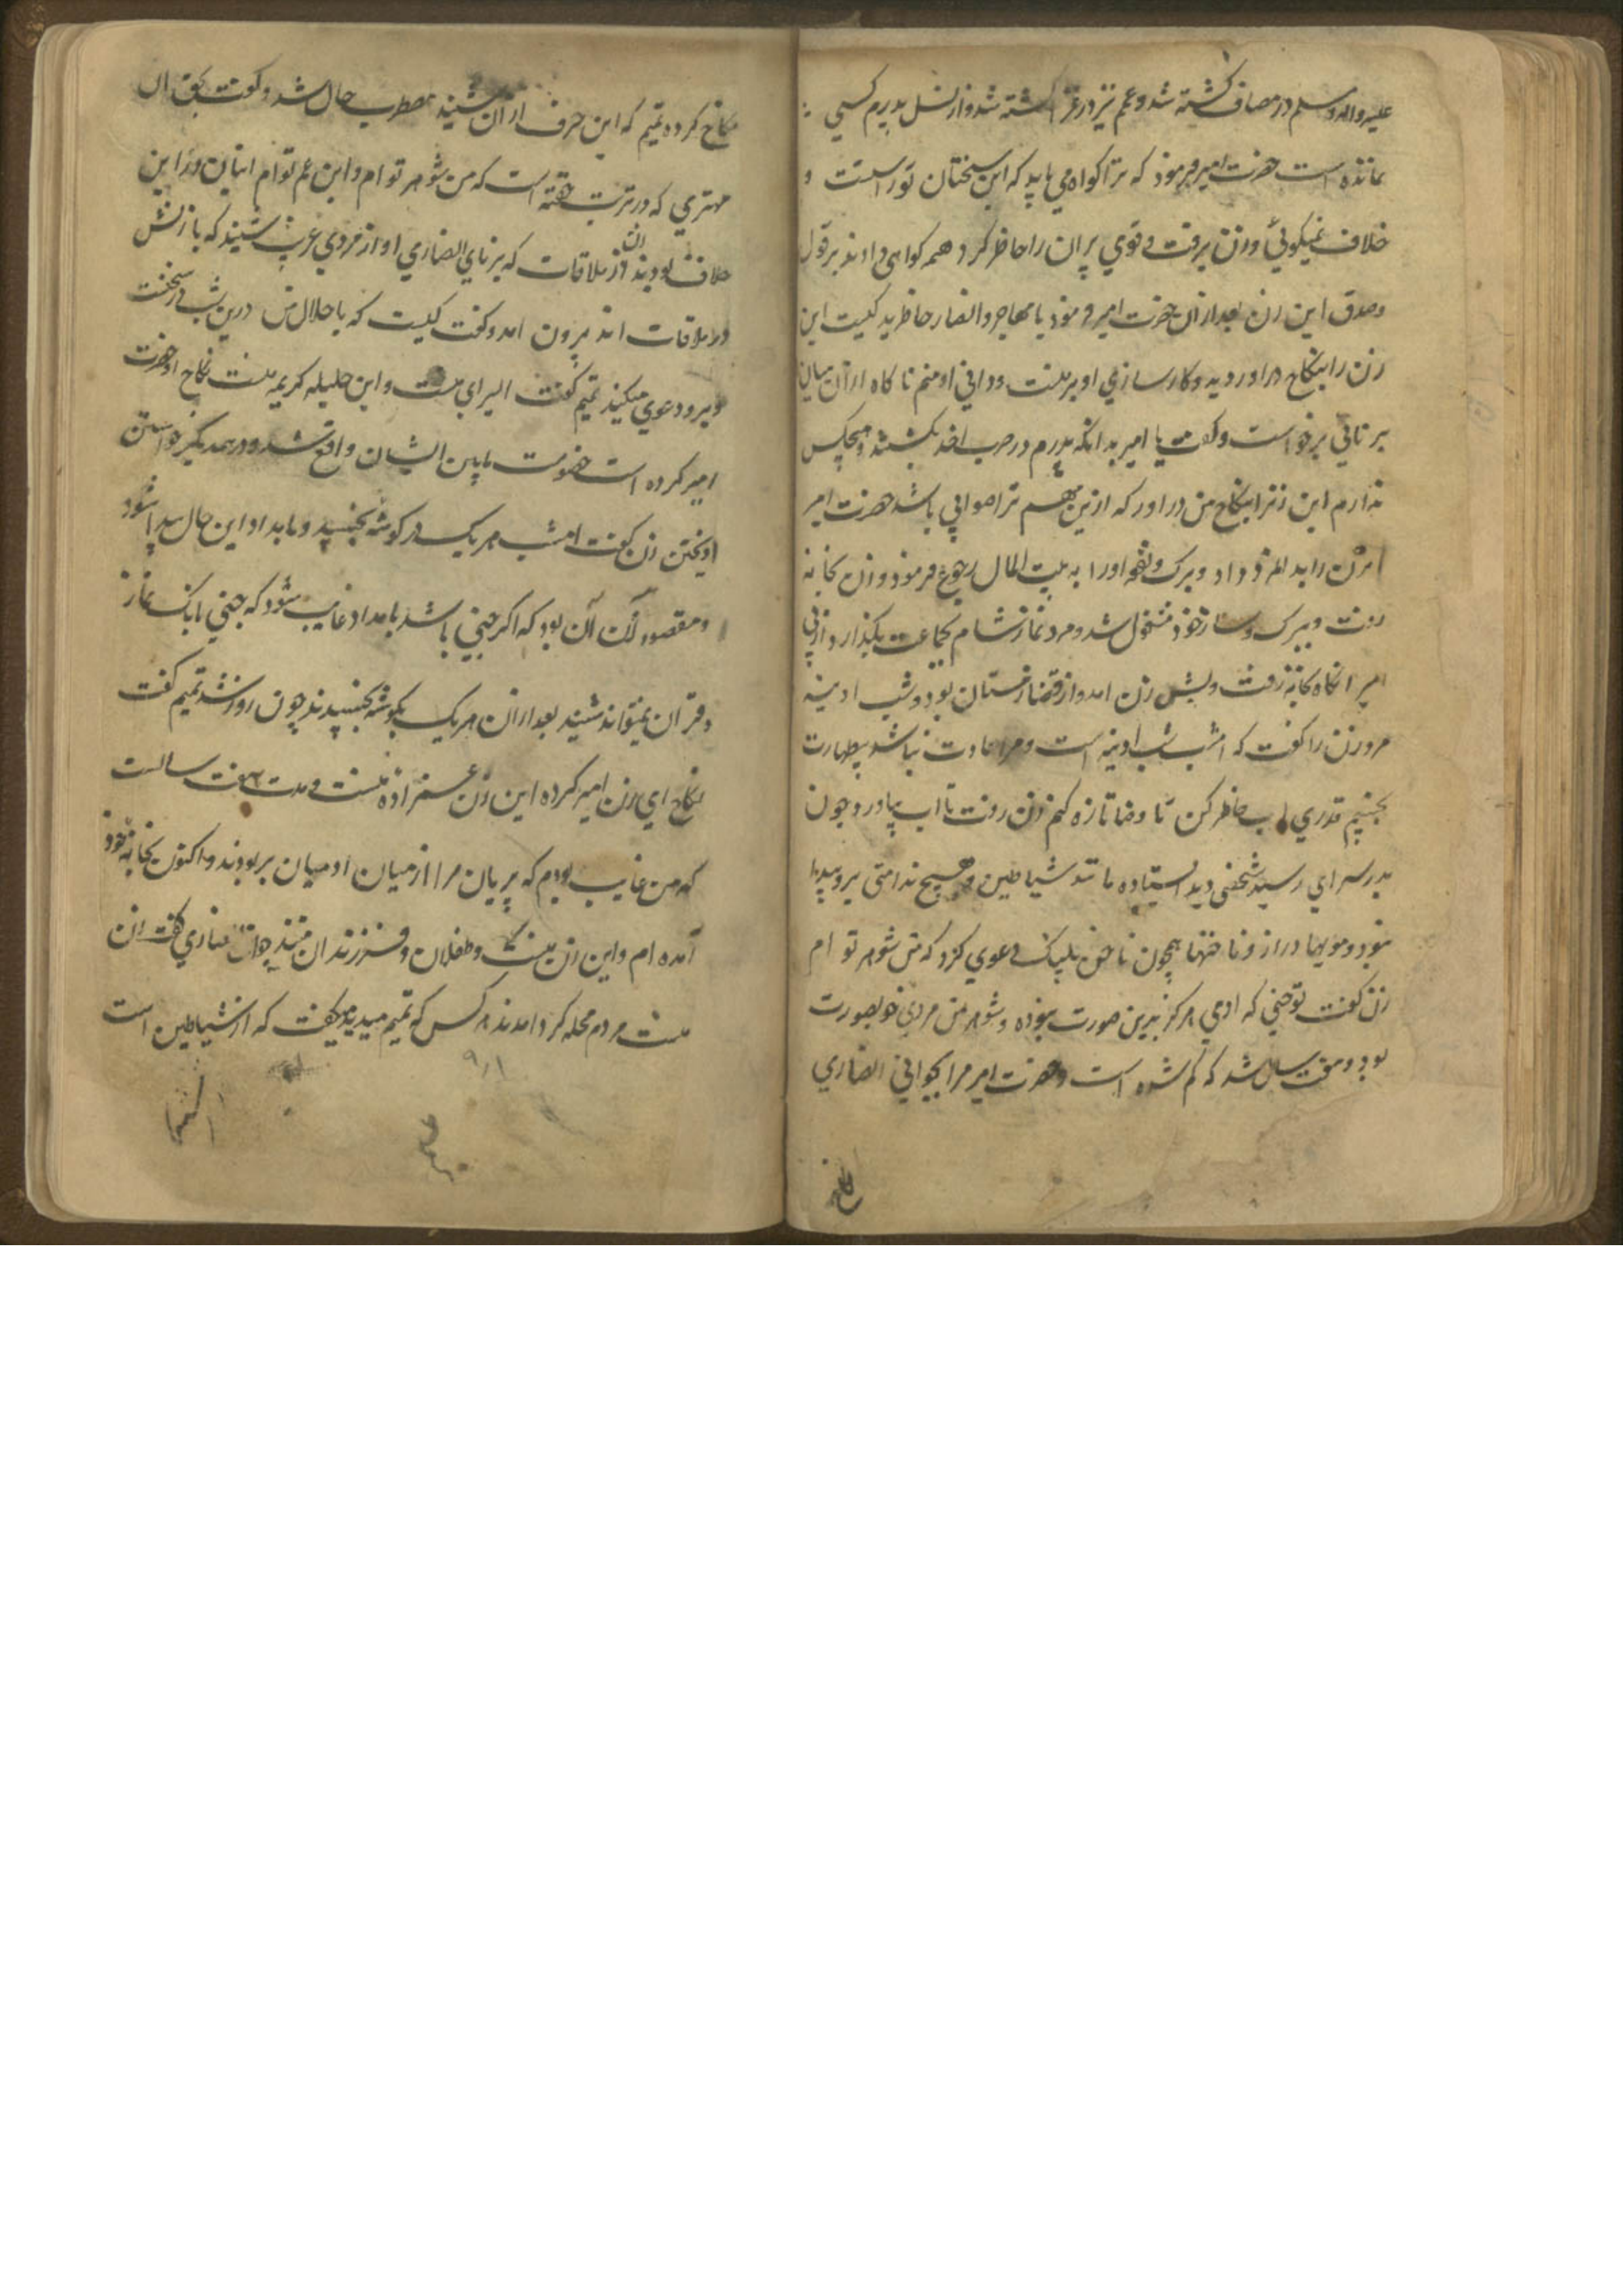 علیه واله وسلم در مصاف کشته شد و عمم نیز در غزا کشته شد و از نسل پدرم کسی
نمانده است حضرت امیر فرموذ که ترا کواه می باید که این سخنان تو راست است و
خلاف نمیکوئی وزن برفت و قوی پیران را حاظر کرد همه کواهی دادند بر قول
وصدق این زن بعد از ان حضرت امیر فرموذ یا مهاجر و انصار حاظرید کیست این
زن را بنکاح در اورد وکارسازی او بر منست و وافی او منم ناکاه از آن میان
برنائی برخواست وکفت یا امیر بدانکه پدرم در حرب احد بکشتند و هیچکس
ندارم این زنرا بنکاح من در اور که ازین مهم ترا صوابی باشد حضرت امیر
آن زن را بدالمرد داد وبرک ونفقه اورا به بیت المال رجوع فرموذ وزن بخانه
رفت و ببرک وساز خوذ مشغول شد ومرد نماز شام بجماعت بکذارد و از پی
امیر انکاه بخانه رفت وپیش زن امد و از قضا زمستان بود و شب ادینه
مرد زن را کفت که امشب شب ادینه است و مرا عادت نباشد بیطهارت
بخسپم قدری اب حاظر کن تا وضا تازه کنم زن رفت تا اب بیاورد چون
بدر سرای رسید شخصی دید ایستاده مانند شیاطین و هیچ ندامتی برو پیدا
نبود ومویها دراز و ناخنها همچون ناخن پلنک دعوی کرد که من شوهر تو ام
زن کفت تو جنی که ادمی هرکز بدین صورت نبوده و شوهر من مردی خوبصورت
بود و هفت سال شد که کم شده است و حضرت امیر مرا بجوانی انصاری
نکاح
نکاح کرده تمیم که این حرف از آن زن شنید مضطرب حال شد و کفت بحق ان
مهتری که در تربت خفته است که من شوهر تو ام و ابن عم تو ام ایشان در این
خلاف بودند و از ملاقات ان که برنای انصاری اواز مردی غریب شنید که با زنش
در ملاقات اند بیرون امد وکفت کیست که با حلال من درین شب در سخنست
وبرو دعوی میکند تمیم کفت السرای منست و این حلیله کریمه منست نکاح او حضرت
امیر کرده است خصومت مابین ایشان واقع شد و در همدیکر خواستن
اویختن زن کفت امشب هر یک در کوشه بخسپید و بامداد این حال پیدا شود
ومقصود زن آن بود که اکر جنی باشد بامداد غایب شود که جنی بانک نماز
و قران نمیتواند شنید بعد از ان هر یک بکوشه بخسپیدند چون روز شد تمیم کفت
نکاح ای زن امیر کرده این زن عمزاده منست و مدت هفت سالست
که من غایب بودم که پریان مرا از میان ادمیان بربودند و اکنون بخانه خود
آمده ام و این زن منست و طفلان و فرزندان منند جوان انصاری کفت زن
منست مردم محله کرد امدند هر کس که تمیم میدید میکفت که از شیاطین است
۹۸۱